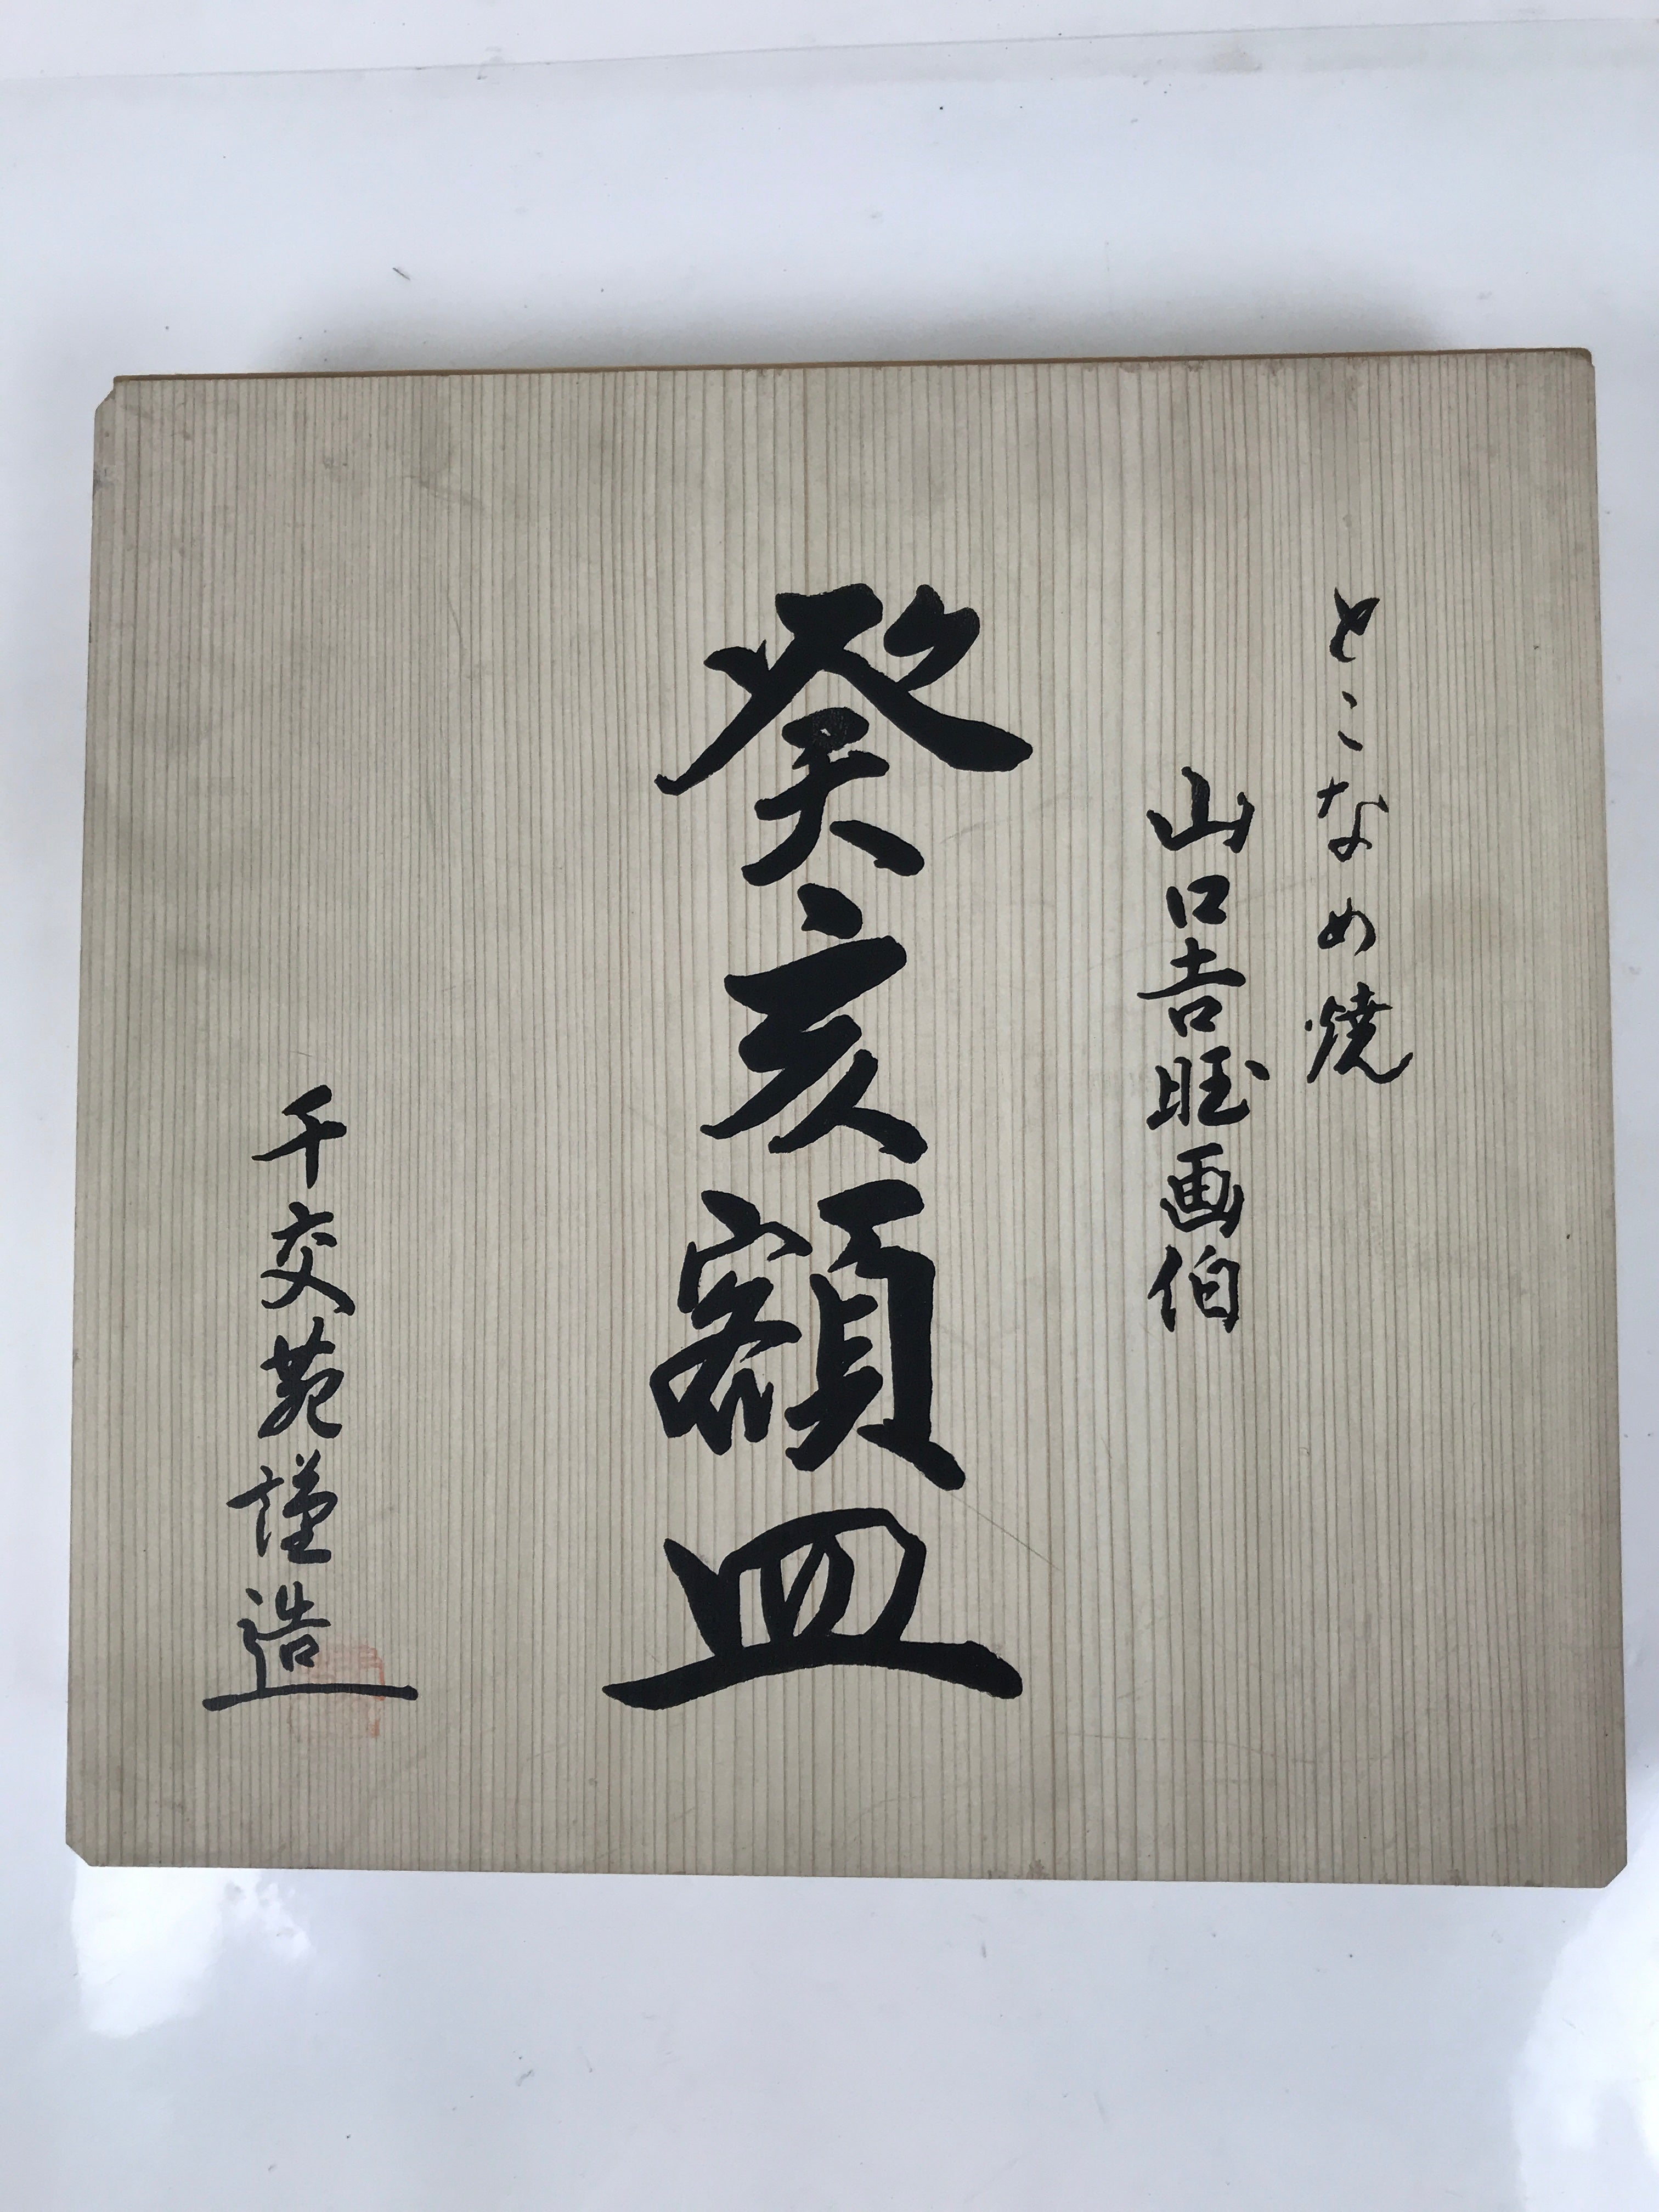 とこなめ焼
山口吉旺画伯
癸亥額皿
千交苑謹造